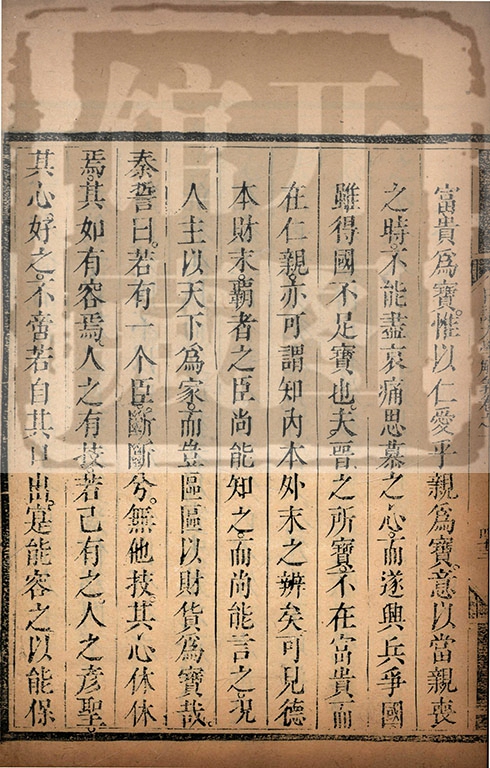 富貴爲寶。惟以仁愛乎親爲寶。意以當親喪
之時。不能盡哀痛思慕之心。而遂興兵爭國
雖得國不足寶也。夫晉之所寶。不在富貴而
在仁親。亦可謂知內本外末之辨矣可見德
本財末。霸者之臣尚能知之。而尚能言之。況
人主以天下爲家。而豈區區以財貨爲寶哉。
秦誓曰。若有一个臣。斷斷兮。無他技。其心休休
焉。其如有容焉。人之有技。若己有之。人之彥聖。
其心好之。不啻若自其口出。寔能容之以能保